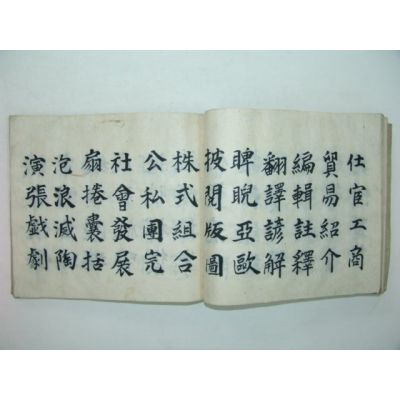 仕官工商
貿易紹介
編輯註釋
翻譯諺解
睥睨亞歐
披閱版圖
株式組合
公私團完
社會發展
扇捲囊括
泡浪滅陶
演張戱劇